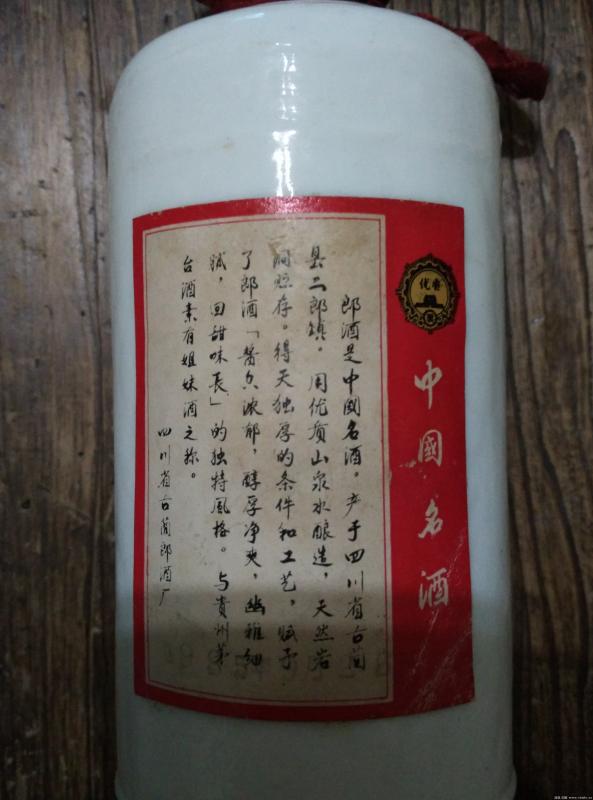 中國名酒
郎酒是中國名酒。产于四川省古蔺
县二郎镇。用优质山泉水酿造，天然岩
洞贮存。得天独厚的条件和工艺，赋予
了郎酒「酱香浓郁，醇厚净爽，幽雅细
腻，回甜味長」的独特風格。与贵州茅
台酒素有姐妹酒之称。
四川省古蔺郎酒厂